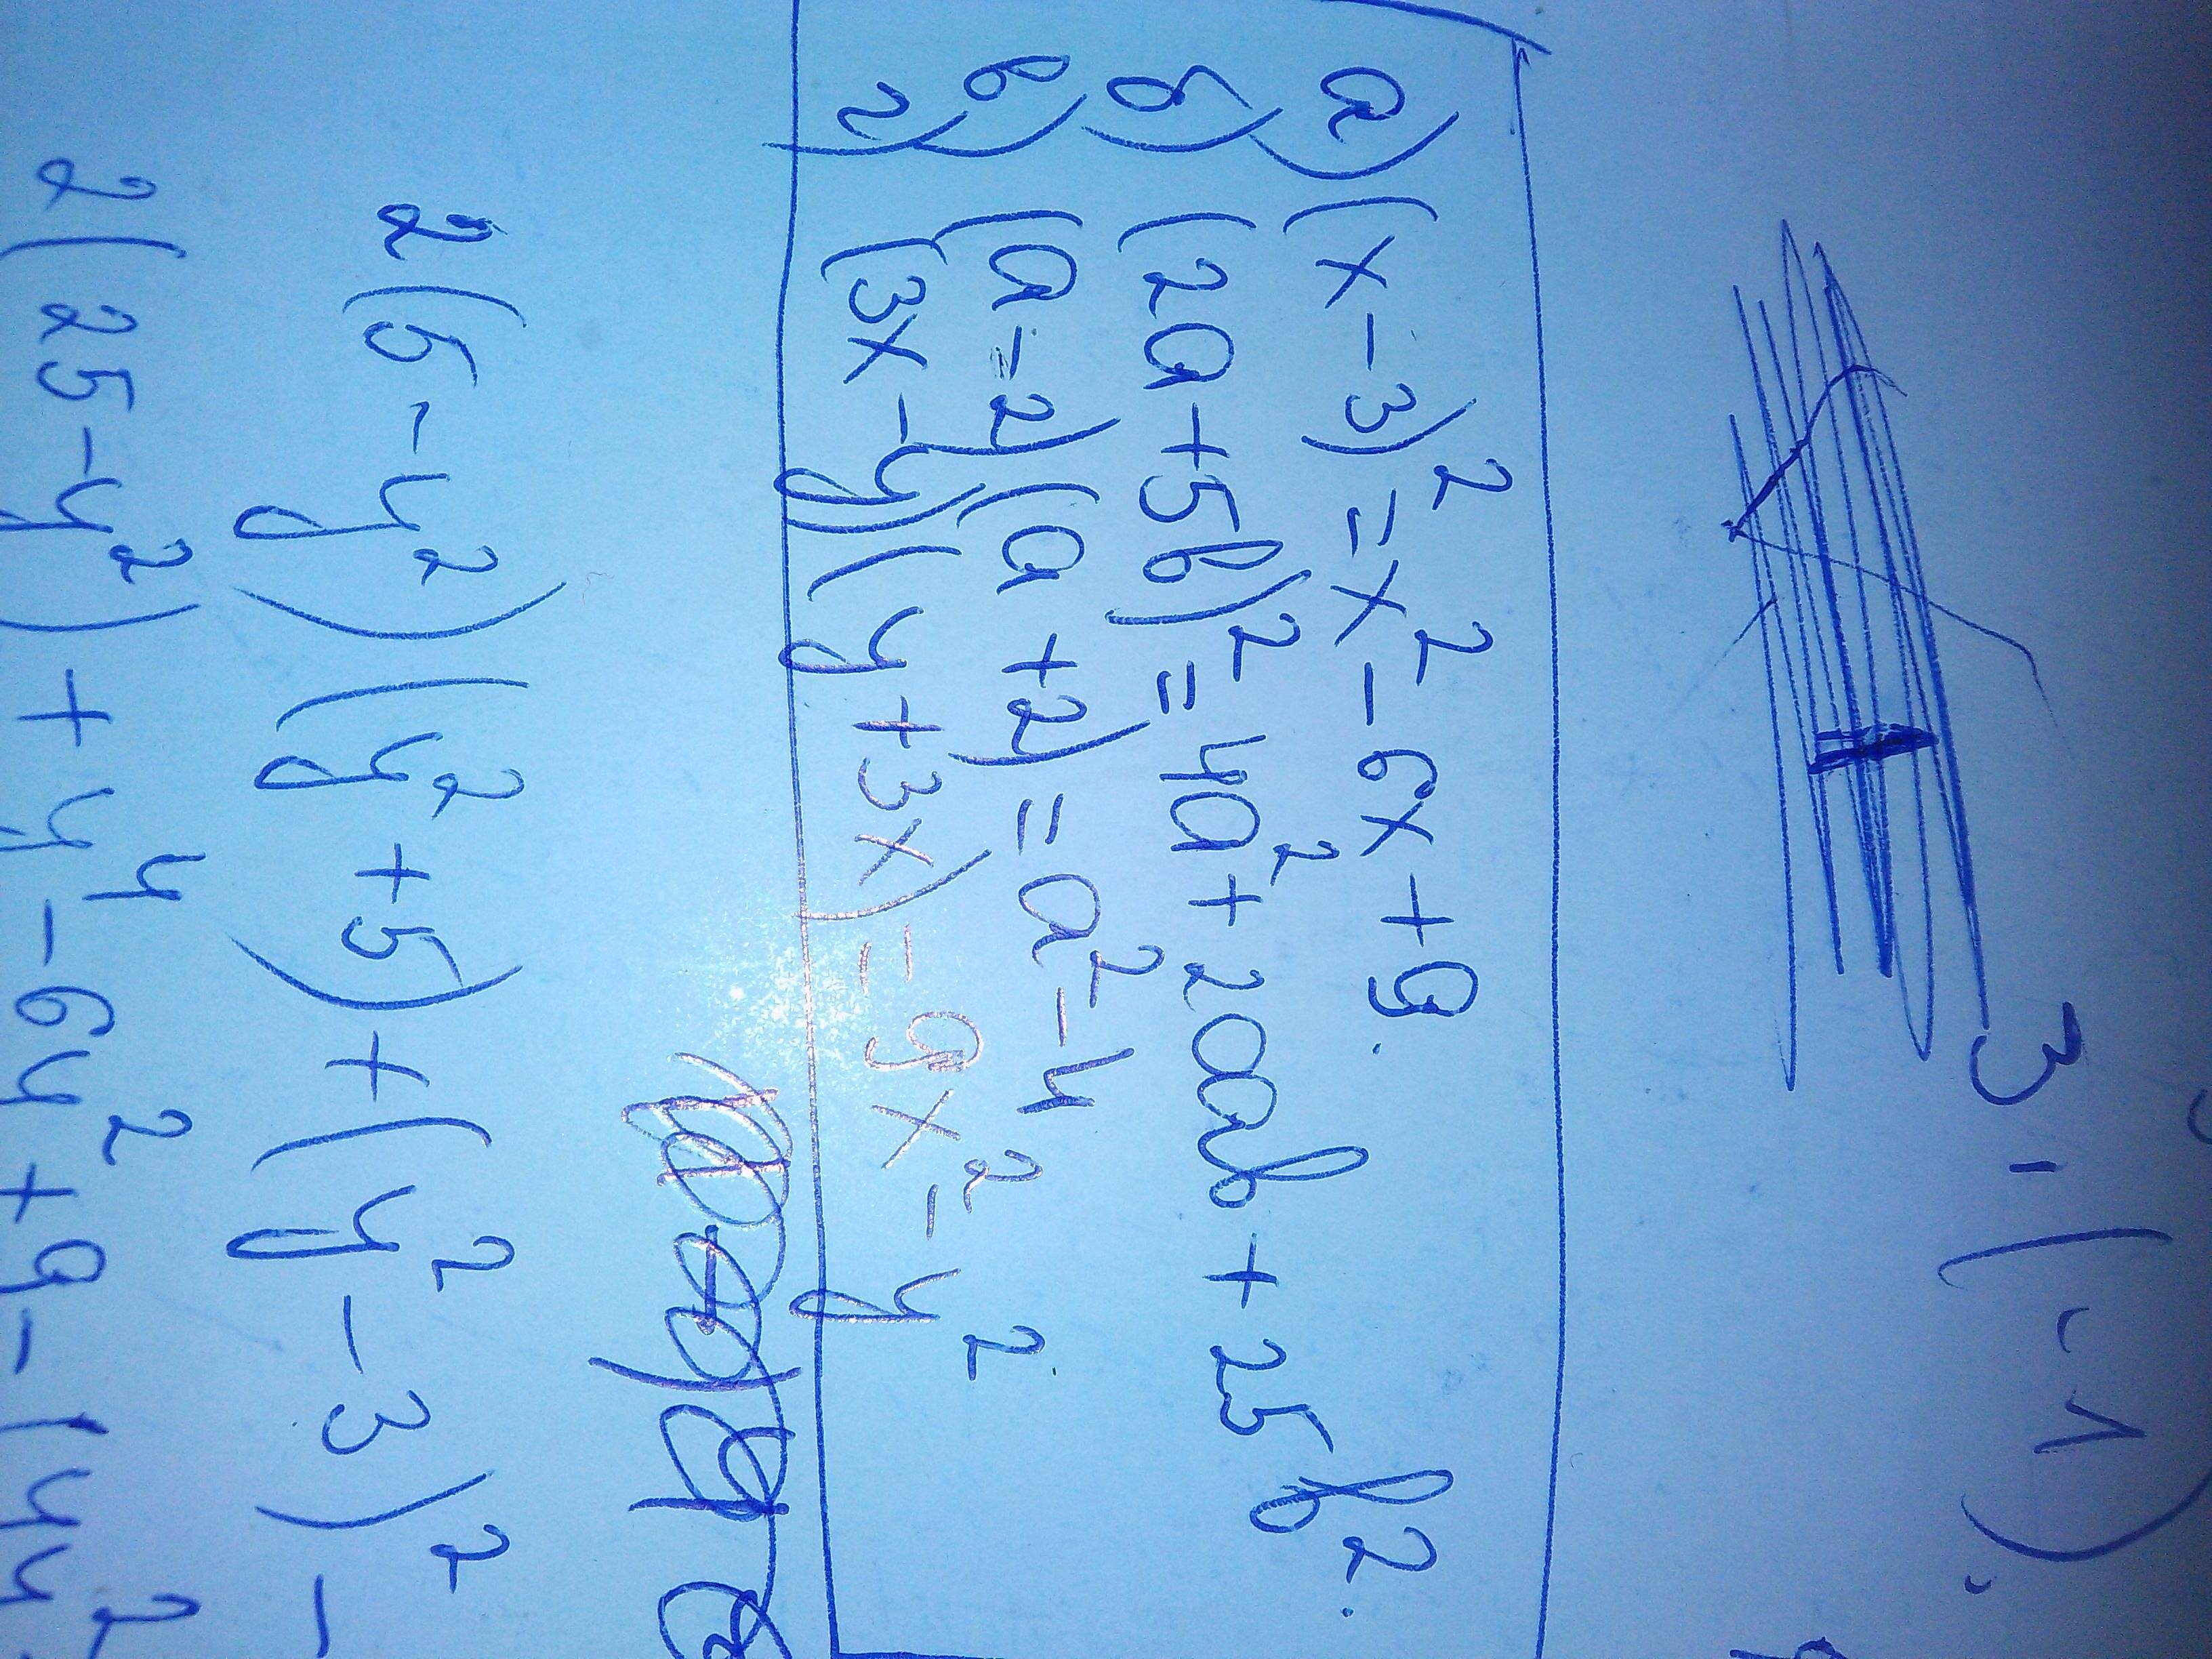 3 · (-1)
а) (x-3)² = x² - 6x + 9.
б) (2a+5b)² = 4a² + 20ab + 25b².
в) (a-2)(a+2) = a² - 4
г) (3x-y)(y+3x) = 9x² - y².
2(5-y²)(y²+5) + (y²-3)² -
2(25-y²) + y⁴ - 6y² + 9 - (4y²